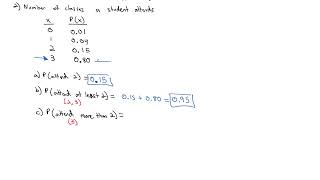 2) Number of classes a student attends
x P(x)
0 0.01
1 0.04
2 0.15
3 0.80
a) P(attend 2) = 0.15
b) P(attend at least 2) = 0.15 + 0.80 = 0.95
(2, 3)
c) P(attend more than 2) =
(3)